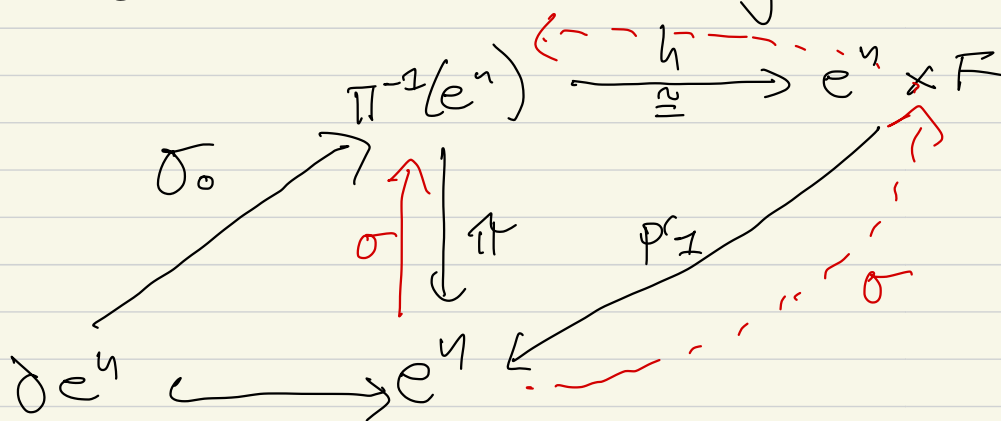 h
π⁻¹(eⁿ) ≅ eⁿ × F
σ₀
σ π pr₁ σ
∂eⁿ eⁿ